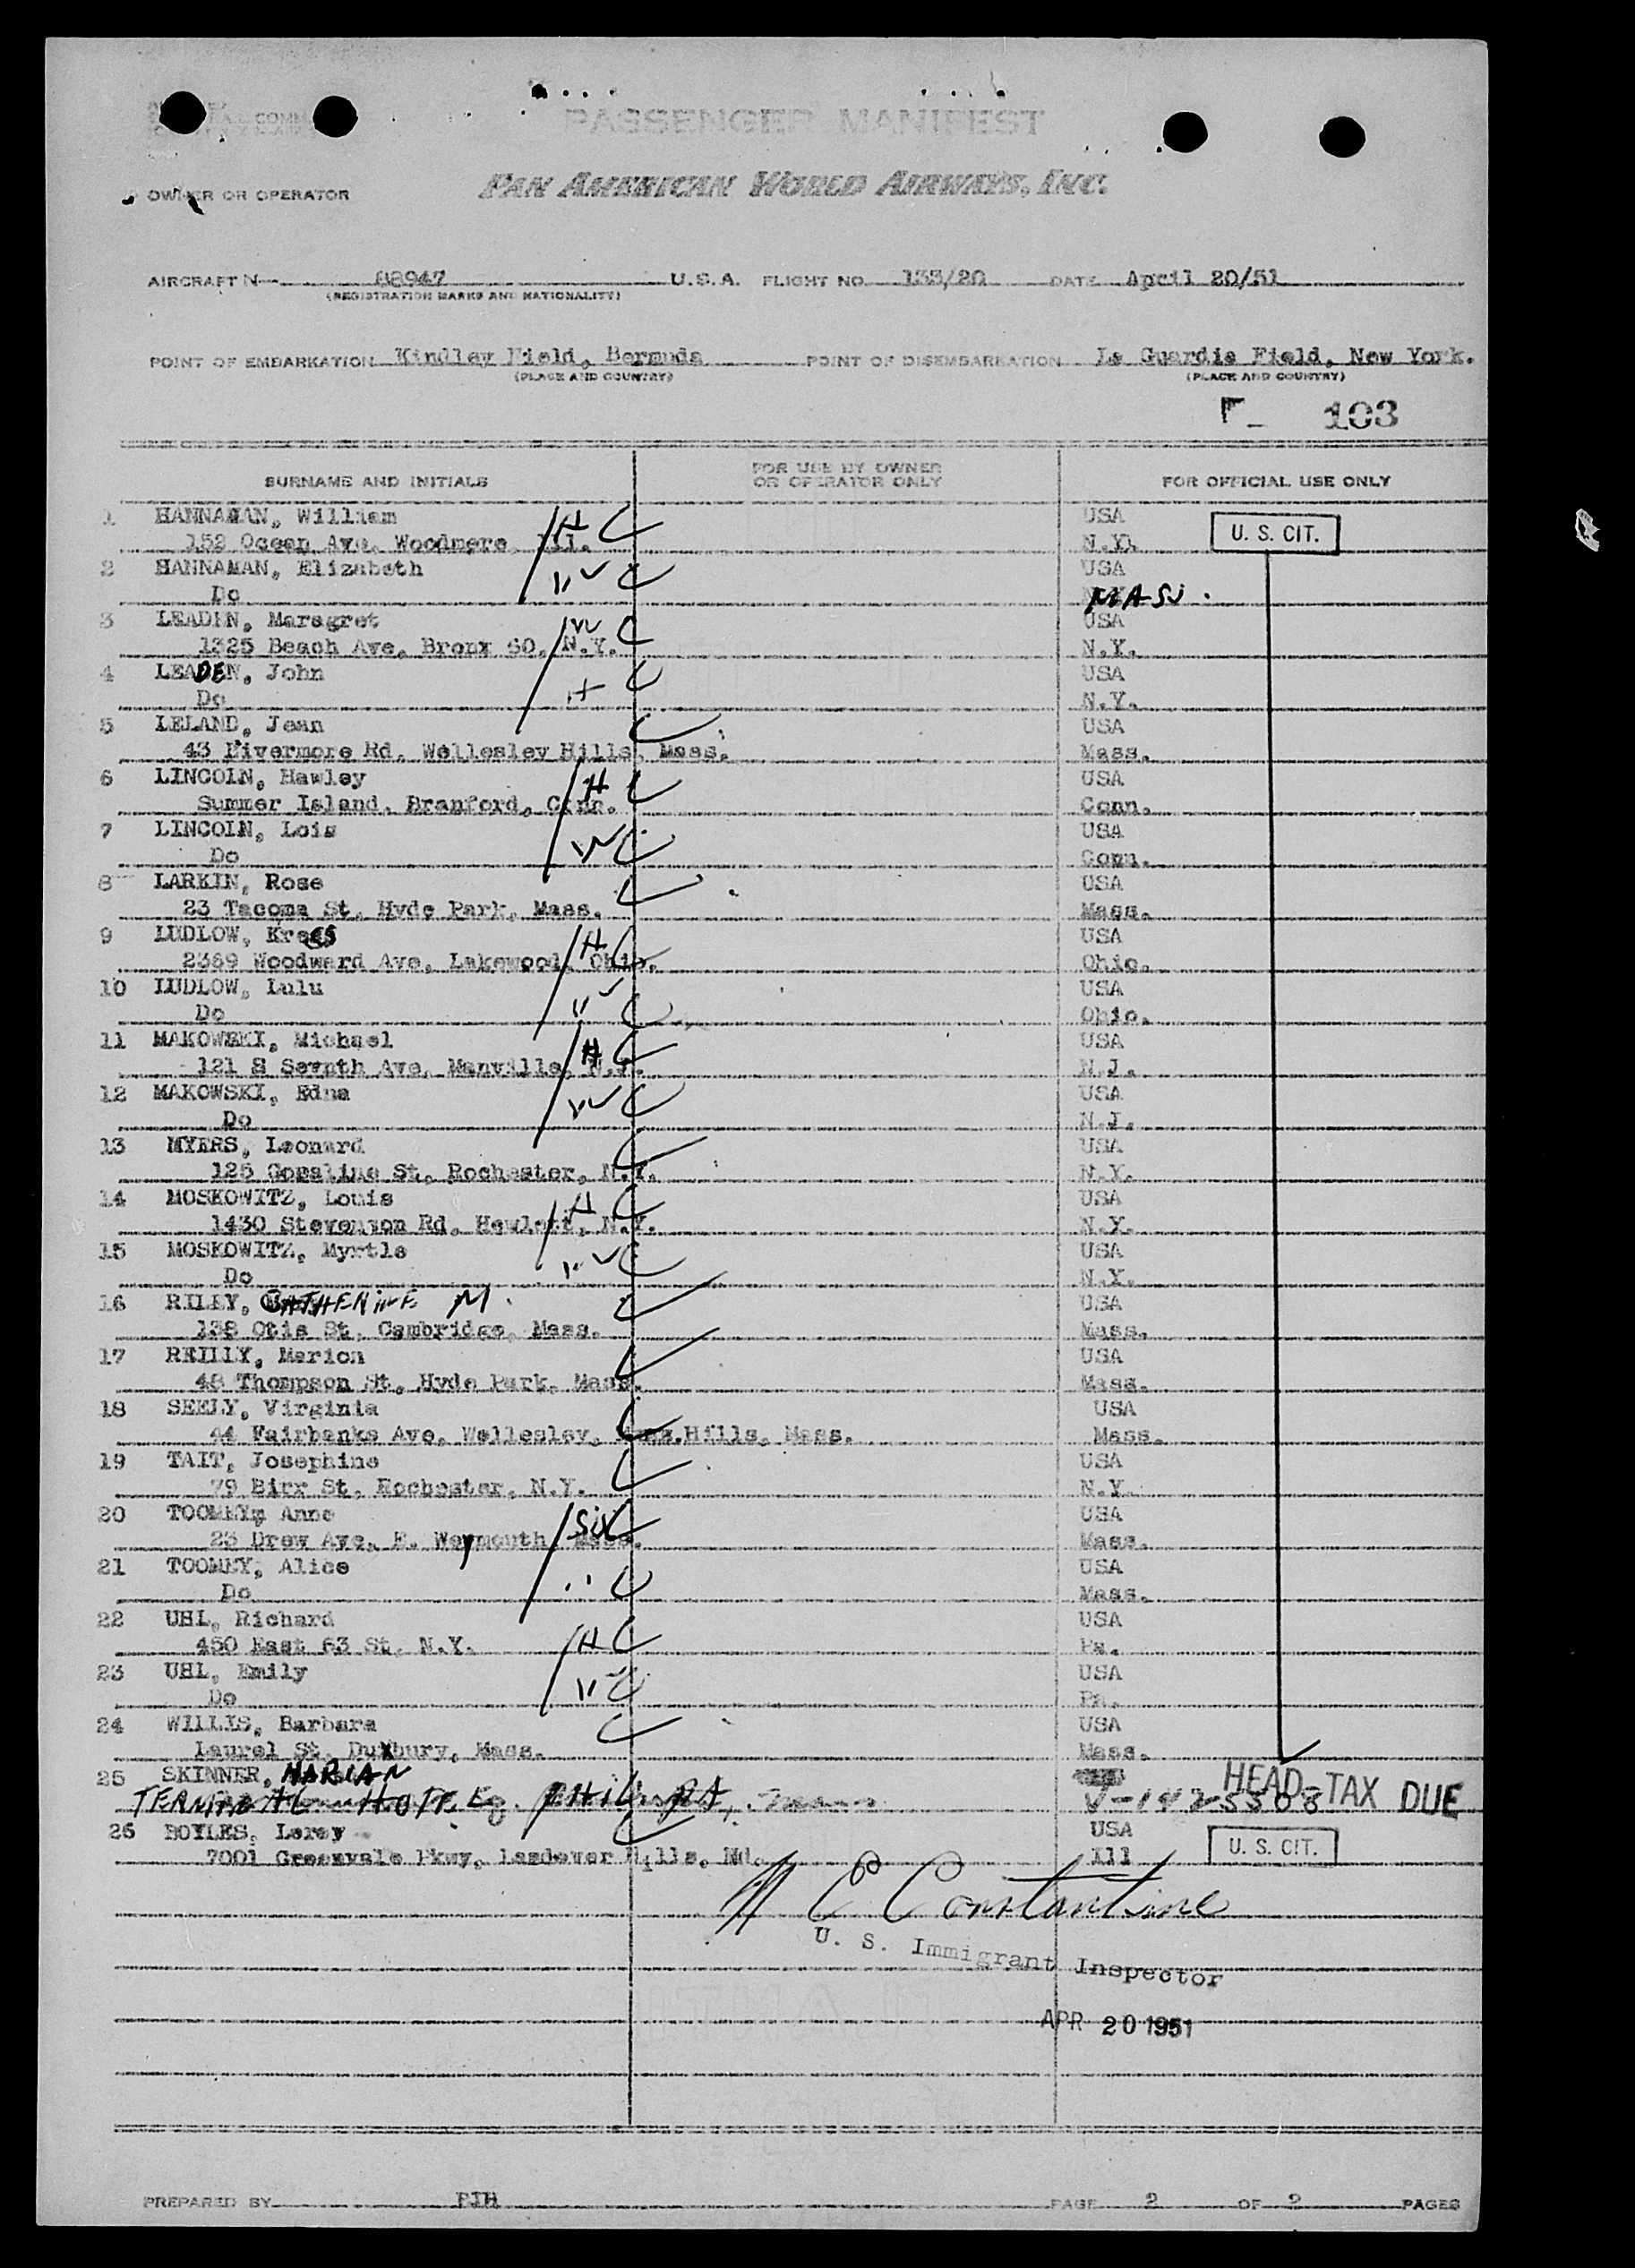 PASSENGER MANIFEST
OWNER OR OPERATOR PAN AMERICAN WORLD AIRWAYS, INC.
AIRCRAFT N 88947 U.S.A. FLIGHT NO. 133/20 DATE April 20/51
(REGISTRATION MARKS AND NATIONALITY)
POINT OF EMBARKATION Kindley Field, Bermuda POINT OF DISEMBARKATION La Guardia Field, New York.
(PLACE AND COUNTRY) (PLACE AND COUNTRY)
103
SURNAME AND INITIALS FOR USE BY OWNER OR OPERATOR ONLY FOR OFFICIAL USE ONLY
1 HANNAMAN, William H C USA U. S. CIT.
152 Ocean Ave, Woodmere, N.Y.
2 HANNAMAN, Elizabeth C USA
Do MASS.
3 LEADEN, Maragret W C USA
1325 Beach Ave, Bronx 60, N.Y. N.Y.
4 LEADEN, John H C USA
Do N.Y.
5 LELAND, Jean C USA
43 Livermore Rd, Wellesley Hills, Mass. Mass.
6 LINCOLN, Hawley H C USA
Summer Island, Branford, Conn. Conn.
7 LINCOLN, Lois W C USA
Do Conn.
8 LARKIN, Rose C USA
23 Tacoma St, Hyde Park, Mass. Mass.
9 LUDLOW, Kress H C USA
2389 Woodward Ave, Lakewood, Ohio. Ohio.
10 LUDLOW, Lulu C USA
Do Ohio.
11 MAKOWSKI, Michael H C USA
121 S Sevnth Ave, Manville, N.J. N.J.
12 MAKOWSKI, Edna W C USA
Do N.J.
13 MYERS, Leonard C USA
125 St, Rochester, N.Y. N.Y.
14 MOSKOWITZ, Louis H C USA
1430 Stevenson Rd, Hewlett, N.Y. N.Y.
15 MOSKOWITZ, Myrtle W C USA
Do N.Y.
16 RILEY, CATHERINE M. C USA
138 Otis St, Cambridge, Mass. Mass.
17 REILLY, Marion C USA
48 Thompson St, Hyde Park, Mass. Mass.
18 SEELY, Virginia C USA
44 Fairbanks Ave, Wellesley, Hills, Mass. Mass.
19 TAIT, Josephine C USA
79 Birx St, Rochester, N.Y. N.Y.
20 TOOMEY, Anne Sis C USA
23 Drew Ave, E. Weymouth, Mass. Mass.
21 TOOMEY, Alice C USA
Do Mass.
22 UHL, Richard H C USA
450 East 63 St, N.Y. Pa.
23 UHL, Emily C USA
Do Pa.
24 WILLIS, Barbara C USA
Laurel St, Duxbury, Mass. Mass.
25 SKINNER, MARIAN HEAD TAX DUE
HOTEL, PHILA PA,
26 BOYLES, Leroy C USA U. S. CIT.
7001 Greenvale Pkwy, Landover Hills, Md. Ill
Constantine
U. S. Immigrant Inspector
APR 20 1951
PREPARED BY PAGE 2 OF 2 PAGES